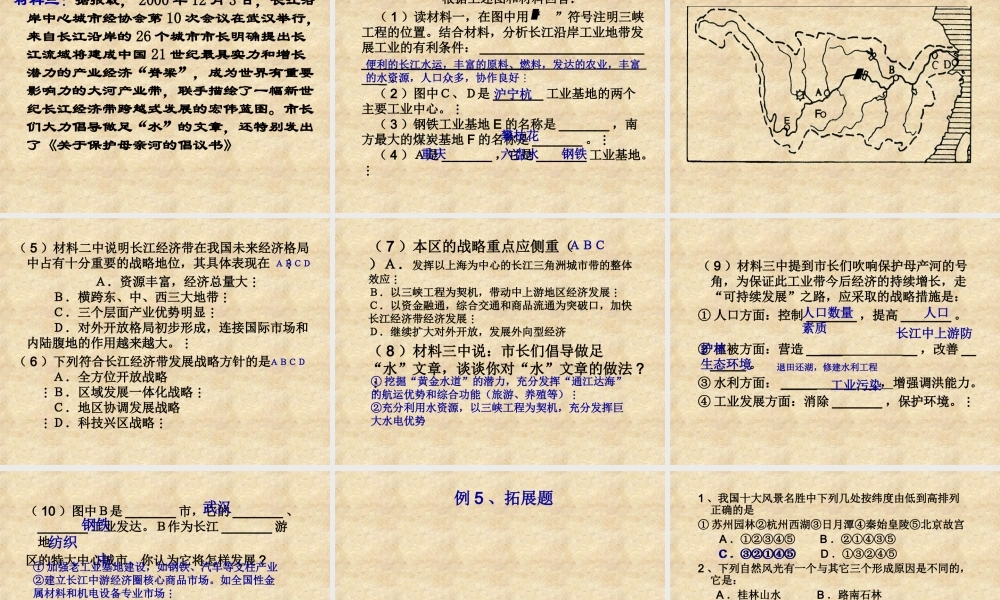 材料三：据报载， 2000 年 12 月 3 日，长江沿
岸中心城市经协会第 10 次会议在武汉举行，
来自长江沿岸的 26 个城市市长明确提出长
江流域将建成中国 21 世纪最具实力和增长
潜力的产业经济“脊梁”，成为世界有重要
影响力的大河产业带，联手描绘了一幅新世
纪长江经济带跨越式发展的宏伟蓝图。市长
们大力倡导做足“水”的文章，还特别发出
了《关于保护母亲河的倡议书》
根据上述图和材料回答：
（1）读材料一，在图中用“ ”符号注明三峡
工程的位置。结合材料，分析长江沿岸工业地带发
展工业的有利条件：
便利的长江水运，丰富的原料、燃料，发达的农业，丰富
的水资源，人口众多，协作良好⋮
（2）图中C、D是 沪宁杭 工业基地的两个
主要工业中心。⋮
（3）钢铁工业基地 E 的名称是 ，南
攀枝花
方最大的煤炭基地 F 的名称是 。⋮
（4）A是 重庆 ，它是 六盘水 钢铁 工业基地。
⋮
A
B
C D
E
F
（5）材料二中说明长江经济带在我国未来经济格局
中占有十分重要的战略地位，其具体表现在（ A B C D
A．资源丰富，经济总量大⋮
B．横跨东、中、西三大地带⋮
C．三个层面产业优势明显⋮
D．对外开放格局初步形成，连接国际市场和
内陆腹地的作用越来越大。⋮
（6）下列符合长江经济带发展战略方针的是 A B C D
A．全方位开放战略
⋮ B．区域发展一体化战略⋮
C．地区协调发展战略
⋮ D．科技兴区战略⋮
（7）本区的战略重点应侧重（A B C
）A．发挥以上海为中心的长江三角洲城市带的整体
效应⋮
B．以三峡工程为契机，带动中上游地区经济发展⋮
C．以资金融通，综合交通和商品流通为突破口，加快
长江经济带经济发展⋮
D．继续扩大对外开放，发展外向型经济
（8）材料三中说：市长们倡导做足
“水”文章，谈谈你对“水”文章的做法？
①挖掘“黄金水道”的潜力，充分发挥“通江达海”
的航运优势和综合功能（旅游、养殖等）⋮
②充分利用水资源，以三峡工程为契机，充分发挥巨
大水电优势
（9）材料三中提到市长们吹响保护母产河的号
角，为保证此工业带今后经济的持续增长，走
“可持续发展”之路，应采取的战略措施是：
①人口方面：控制 人口数量 ，提高 人口 。
素质
长江中上游防
②植被方面：营造 ，改善
护林
生态环境
退田还湖，修建水利工程
③水利方面： ，增强调洪能力。
④工业发展方面：消除 工业污染 ，保护环境。⋮
（10）图中B是 武汉 市，它的 、
钢铁 工业发达。B作为长江 游
地 纺织
区的特大中心城市，你认为它将怎样发展？
①加强老工业基地建设，如钢铁、汽车等支柱产业
②建立长江中游经济圈核心商品市场。如全国性金
属材料和机电设备专业市场⋮
例5、拓展题
1、我国十大风景名胜中下列几处按纬度由低到高排列
正确的是
①苏州园林②杭州西湖③日月潭④秦始皇陵⑤北京故宫
A．①②③④⑤ B．②①④③⑤
C．③②①④⑤ D．①③②④⑤
2、下列自然风光有一个与其它三个形成原因是不同的，
它是：
A．桂林山水 B．路南石林